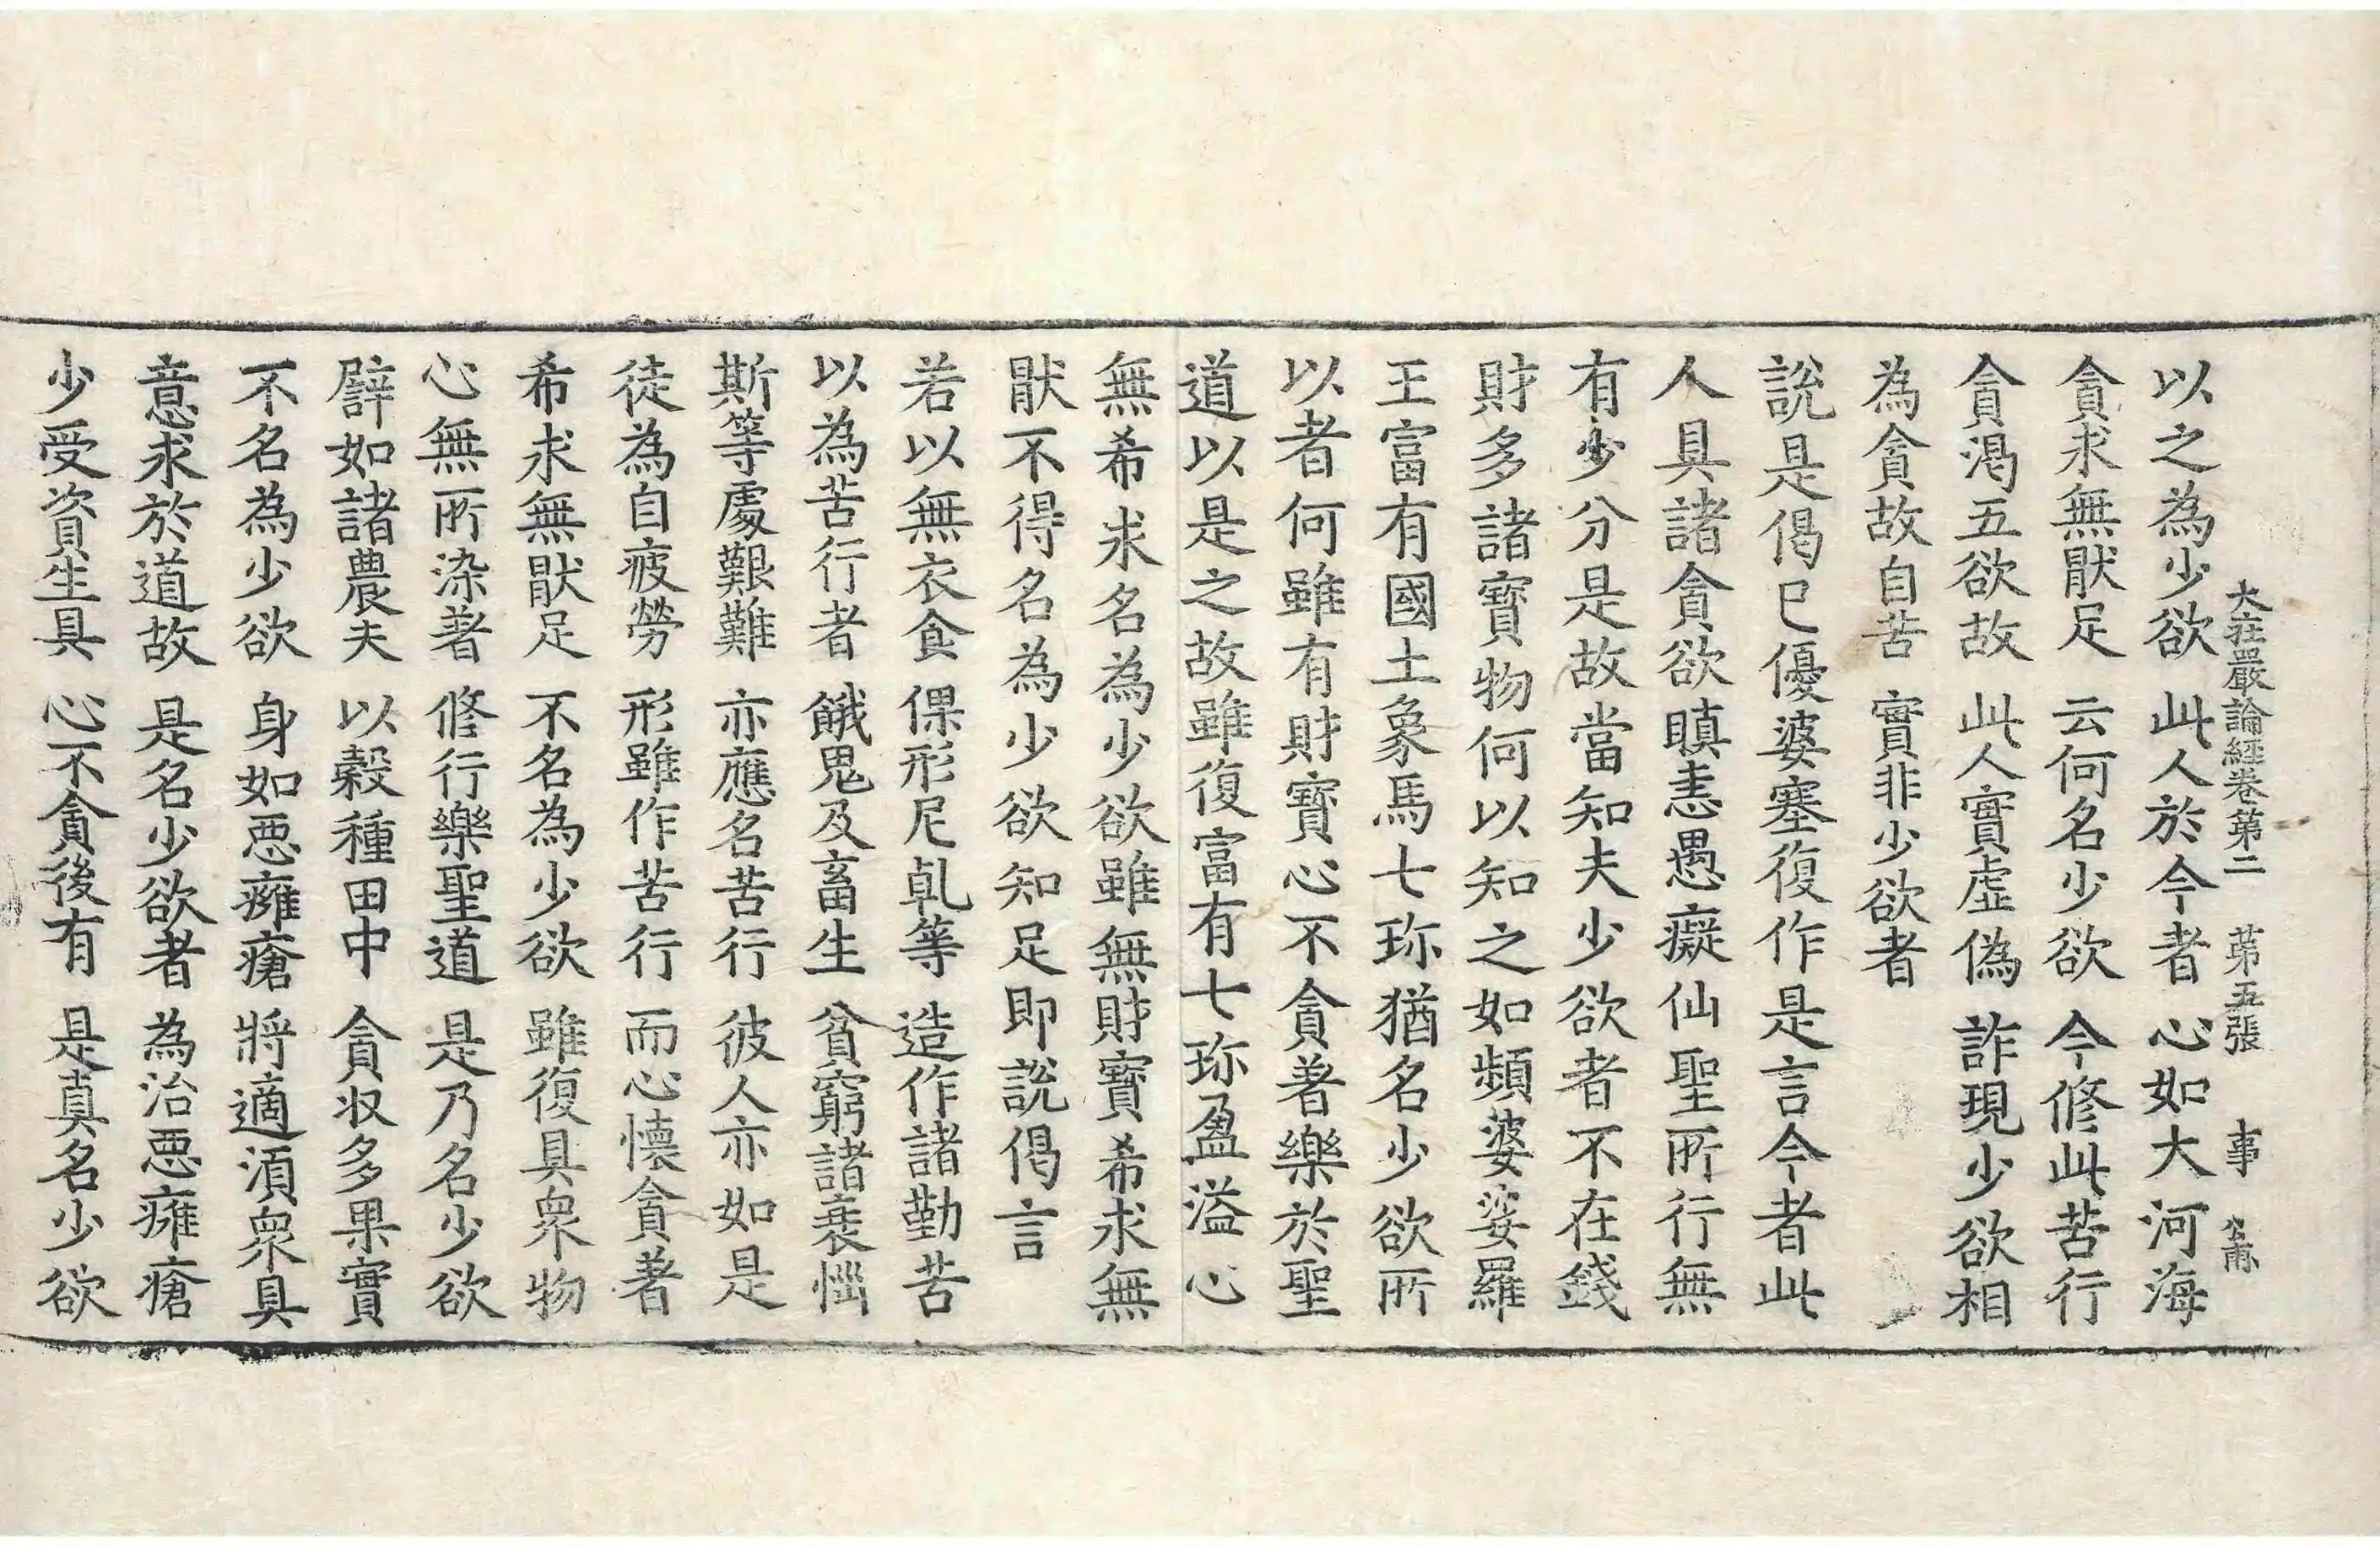 大庄嚴論經卷第二 第五張 事 公甫
以之為少欲 此人於今者 心如大河海
貪求無猒足 云何名少欲 今修此苦行
貪渇五欲故 此人實虛偽 詐現少欲相
為貪故自苦 實非少欲者
說是偈已優婆塞復作是言今者此
人具諸貪欲瞋恚愚癡仙聖所行無
有少分是故當知夫少欲者不在錢
財多諸寶物何以知之如頻婆娑羅
王富有國土象馬七珎猶名少欲所
以者何雖有財寶心不貪著樂於聖
道以是之故雖復富有七珎盈溢心
無希求名為少欲雖無財寶希求無
猒不得名為少欲知足即說偈言
若以無衣食 倮形尼乹等 造作諸勤苦
以為苦行者 餓鬼及畜生 貧窮諸衰惱
斯等處艱難 亦應名苦行 彼人亦如是
徒為自疲勞 形雖作苦行 而心懷貪著
希求無猒足 不名為少欲 雖復具衆物
心無所染著 修行樂聖道 是乃名少欲
辟如諸農夫 以穀種田中 貪収多果實
不名為少欲 身如惡癰瘡 將適湏衆具
意求於道故 是名少欲者 為治惡癰瘡
少受資生具 心不貪後有 是真名少欲